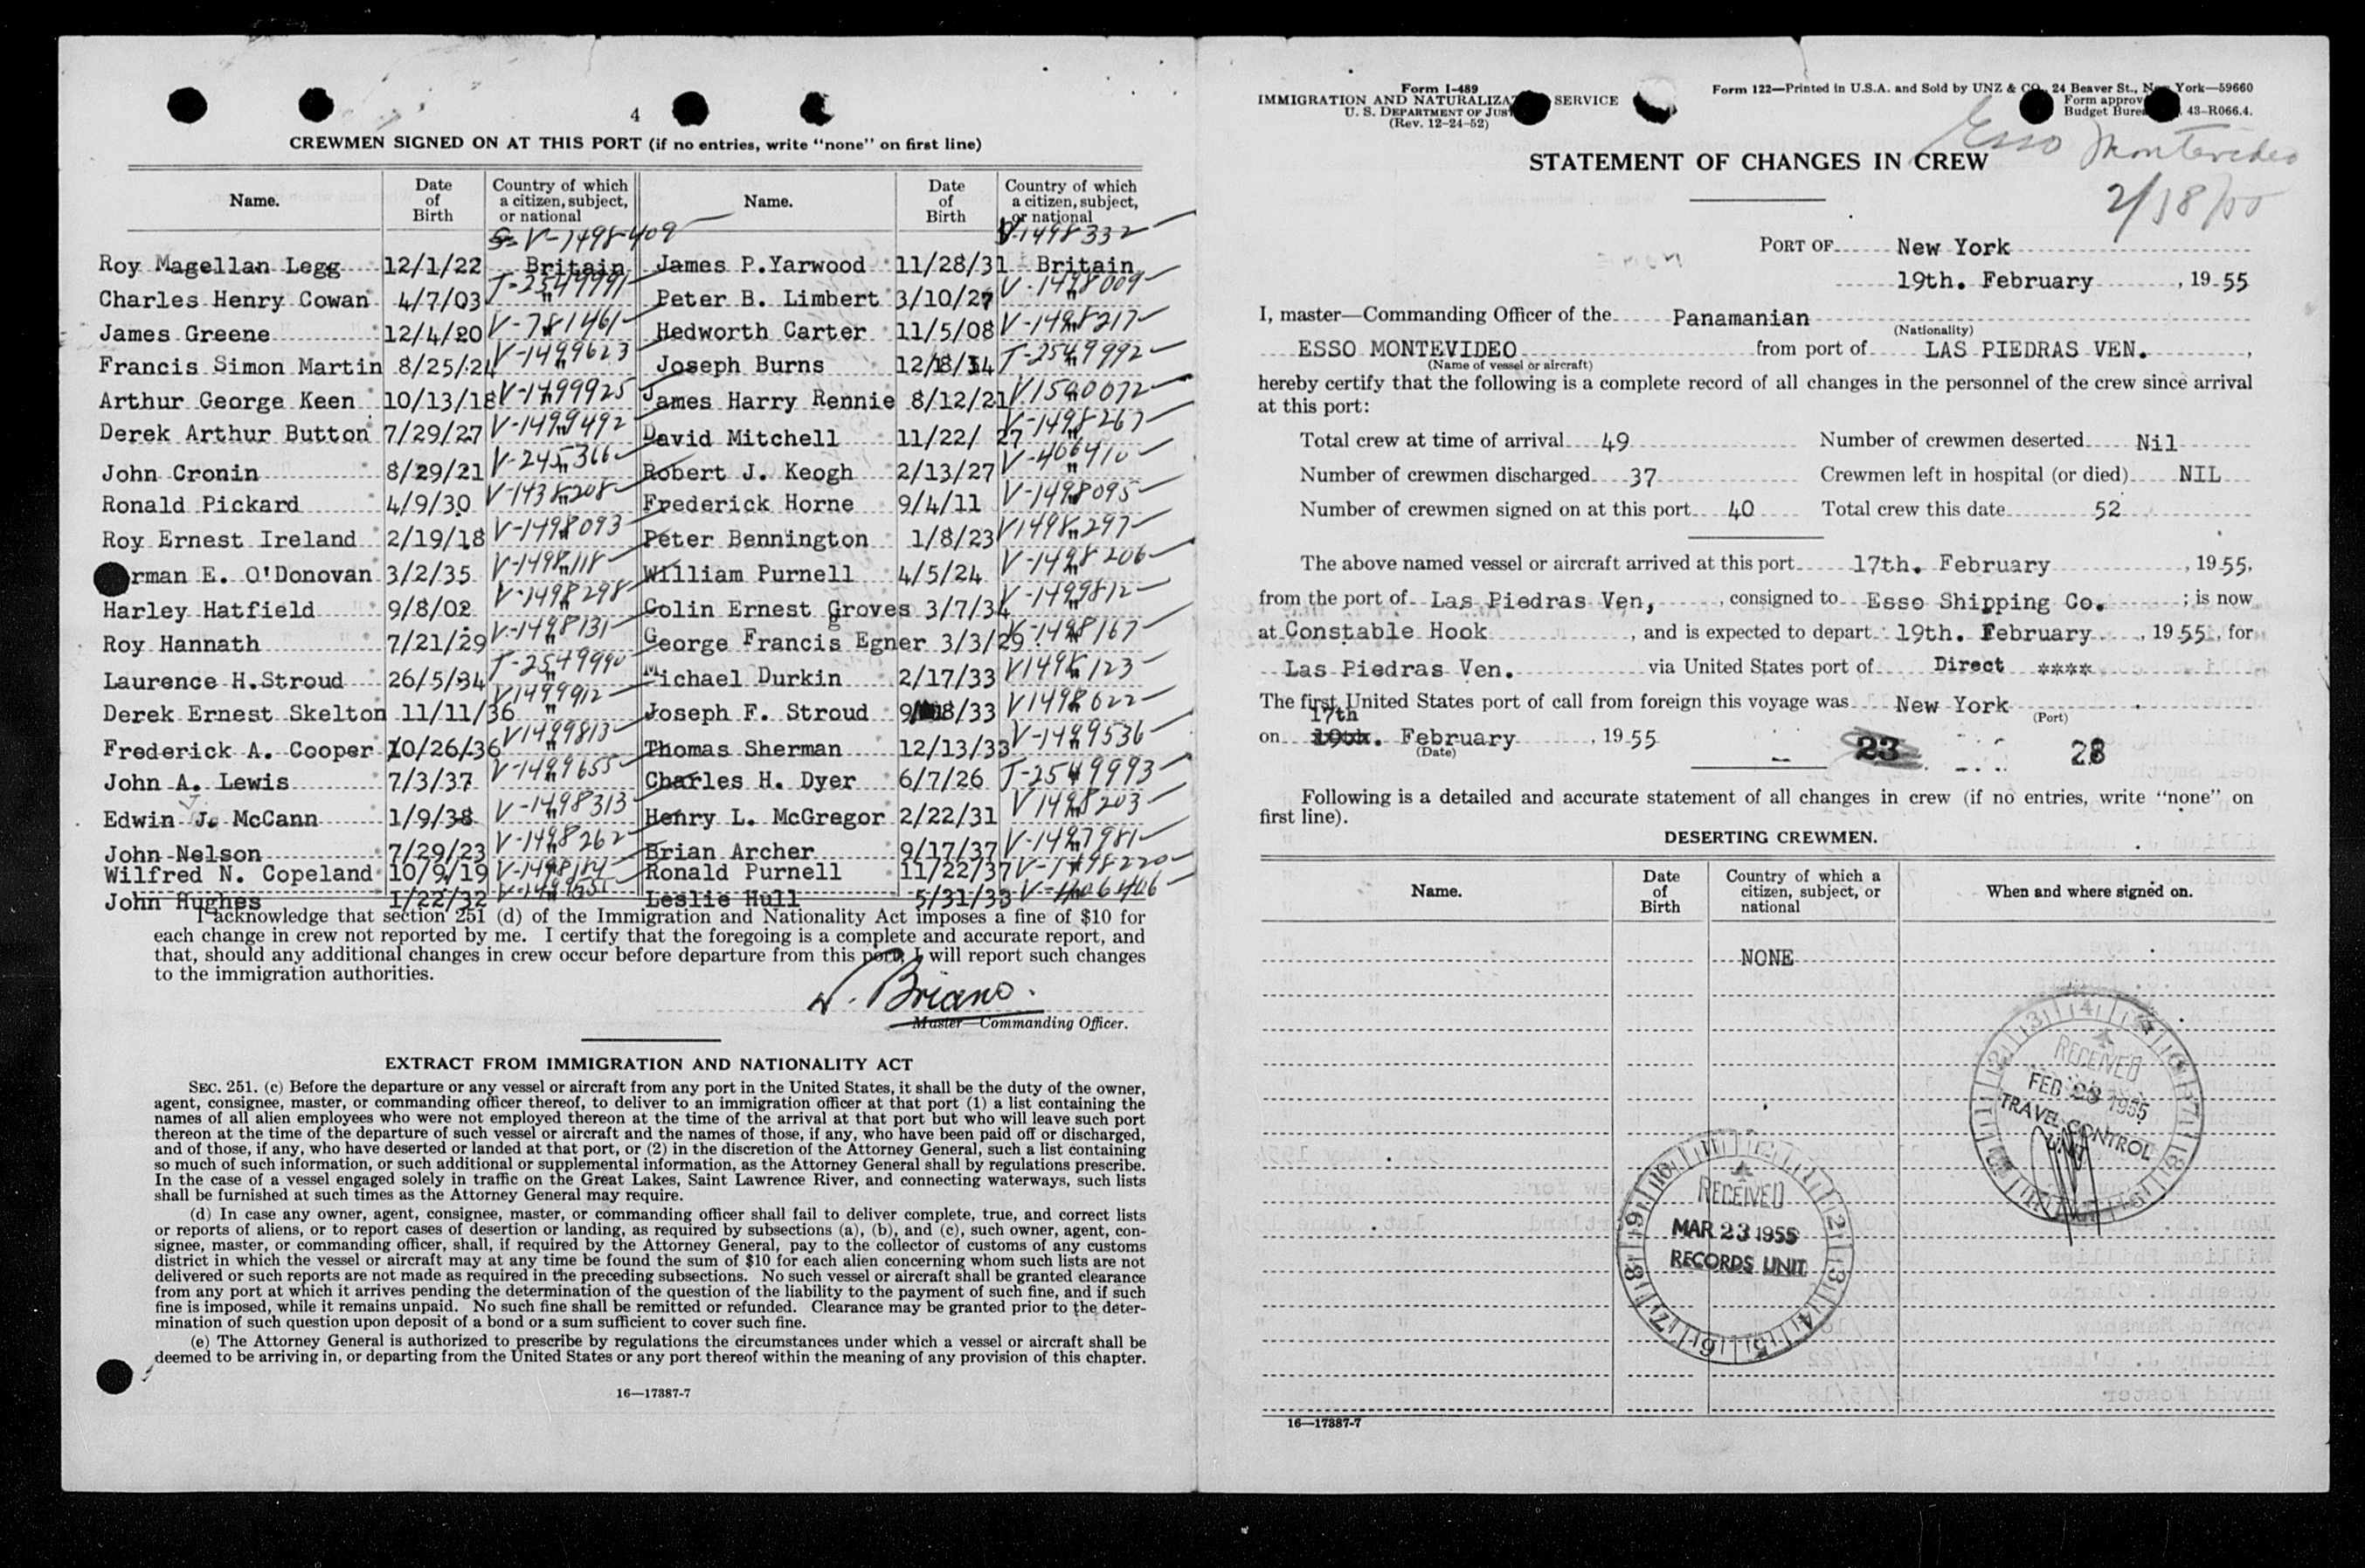 4
CREWMEN SIGNED ON AT THIS PORT (if no entries, write "none" on first line)
Name. Date of Birth Country of which a citizen, subject, or national Name. Date of Birth Country of which a citizen, subject, or national
V-1498409 V-1498332
Roy Magellan Legg 12/1/22 Britain James P.Yarwood 11/28/31 Britain
Charles Henry Cowan 4/7/03 T-2549991 " Peter B. Limbert 3/10/27 V-1498009 "
James Greene 12/4/20 V-781461 " Hedworth Carter 11/5/08 V-1498217 "
Francis Simon Martin 8/25/24 V-1499623 " Joseph Burns T-2549992 "
Arthur George Keen 10/13/18 V-1499925 " James Harry Rennie 8/12/21 V1500072 "
Derek Arthur Button 7/29/27 V-1499492 " David Mitchell 11/22/ 27 V-1498267 "
John Cronin 8/29/21 V-245366 " Robert J. Keogh 2/13/27 V-406410 "
Ronald Pickard 4/9/30 V-1438208 " Frederick Horne 9/4/11 V-1498095 "
Roy Ernest Ireland 2/19/18 V-1498093 " Peter Bennington 1/8/23 V1498297 "
rman E. O'Donovan 3/2/35 V-1498118 " William Purnell 4/5/24 V-1498206 "
Harley Hatfield 9/8/02 V-1498298 " Colin Ernest Groves 3/7/34 V-1499812 "
Roy Hannath 7/21/29 V-1498131 " George Francis Egner 3/3/29 V-1498167 "
Laurence H.Stroud 26/5/34 T-2549990 " Michael Durkin 2/17/33 V1498123 "
Derek Ernest Skelton 11/11/36 V1499912 " Joseph F. Stroud V1498622 "
Frederick A. Cooper 10/26/36 V1499813 " Thomas Sherman 12/13/33 V-1499536 "
John A. Lewis 7/3/37 V-1499655 " Charles H. Dyer 6/7/26 T-2549993 "
Edwin J. McCann 1/9/38 V-1498313 " Henry L. McGregor 2/22/31 V1498203 "
John Nelson 7/29/23 V-1498262 " Brian Archer 9/17/37 V-1497981 "
Wilfred N. Copeland 10/9/19 V-1498184 Ronald Purnell 11/22/37 V-1498220
John Hughes 1/22/32 Leslie Hull 5/31/33
I acknowledge that section 251 (d) of the Immigration and Nationality Act imposes a fine of $10 for
each change in crew not reported by me. I certify that the foregoing is a complete and accurate report, and
that, should any additional changes in crew occur before departure from this port, I will report such changes
to the immigration authorities.
Briano.
Master—Commanding Officer.
EXTRACT FROM IMMIGRATION AND NATIONALITY ACT
SEC. 251. (c) Before the departure or any vessel or aircraft from any port in the United States, it shall be the duty of the owner,
agent, consignee, master, or commanding officer thereof, to deliver to an immigration officer at that port (1) a list containing the
names of all alien employees who were not employed thereon at the time of the arrival at that port but who will leave such port
thereon at the time of the departure of such vessel or aircraft and the names of those, if any, who have been paid off or discharged,
and of those, if any, who have deserted or landed at that port, or (2) in the discretion of the Attorney General, such a list containing
so much of such information, or such additional or supplemental information, as the Attorney General shall by regulations prescribe.
In the case of a vessel engaged solely in traffic on the Great Lakes, Saint Lawrence River, and connecting waterways, such lists
shall be furnished at such times as the Attorney General may require.
(d) In case any owner, agent, consignee, master, or commanding officer shall fail to deliver complete, true, and correct lists
or reports of aliens, or to report cases of desertion or landing, as required by subsections (a), (b), and (c), such owner, agent, con-
signee, master, or commanding officer, shall, if required by the Attorney General, pay to the collector of customs of any customs
district in which the vessel or aircraft may at any time be found the sum of $10 for each alien concerning whom such lists are not
delivered or such reports are not made as required in the preceding subsections. No such vessel or aircraft shall be granted clearance
from any port at which it arrives pending the determination of the question of the liability to the payment of such fine, and if such
fine is imposed, while it remains unpaid. No such fine shall be remitted or refunded. Clearance may be granted prior to the deter-
mination of such question upon deposit of a bond or a sum sufficient to cover such fine.
(e) The Attorney General is authorized to prescribe by regulations the circumstances under which a vessel or aircraft shall be
deemed to be arriving in, or departing from the United States or any port thereof within the meaning of any provision of this chapter.
16—17387-7
Form I-489
IMMIGRATION AND NATURALIZA SERVICE
U. S. DEPARTMENT OF JUS
(Rev. 12-24-52)
Form 122—Printed in U.S.A. and Sold by UNZ & CO., 24 Beaver St., New York—59660
Form approv
Budget Burea 43-R066.4.
Esso Montevideo
2/18/55
STATEMENT OF CHANGES IN CREW
PORT OF New York
19th. February , 19 55
I, master—Commanding Officer of the Panamanian
(Nationality)
ESSO MONTEVIDEO from port of LAS PIEDRAS VEN. ,
(Name of vessel or aircraft)
hereby certify that the following is a complete record of all changes in the personnel of the crew since arrival
at this port:
Total crew at time of arrival 49 Number of crewmen deserted Nil
Number of crewmen discharged 37 Crewmen left in hospital (or died) NIL
Number of crewmen signed on at this port 40 Total crew this date 52
The above named vessel or aircraft arrived at this port 17th. February , 19 55,
from the port of Las Piedras Ven, , consigned to Esso Shipping Co. ; is now
at Constable Hook , and is expected to depart 19th. February , 19 55, for
Las Piedras Ven. via United States port of Direct ****
The first United States port of call from foreign this voyage was New York
(Port)
17th
on 19th. February , 19 55
(Date)
23 28
Following is a detailed and accurate statement of all changes in crew (if no entries, write "none" on
first line).
DESERTING CREWMEN.
Name. Date of Birth Country of which a citizen, subject, or national When and where signed on.
NONE
RECEIVED
FEB 28 1955
TRAVEL CONTROL
UNIT
RECEIVED
MAR 23 1955
RECORDS UNIT
16—17387-7